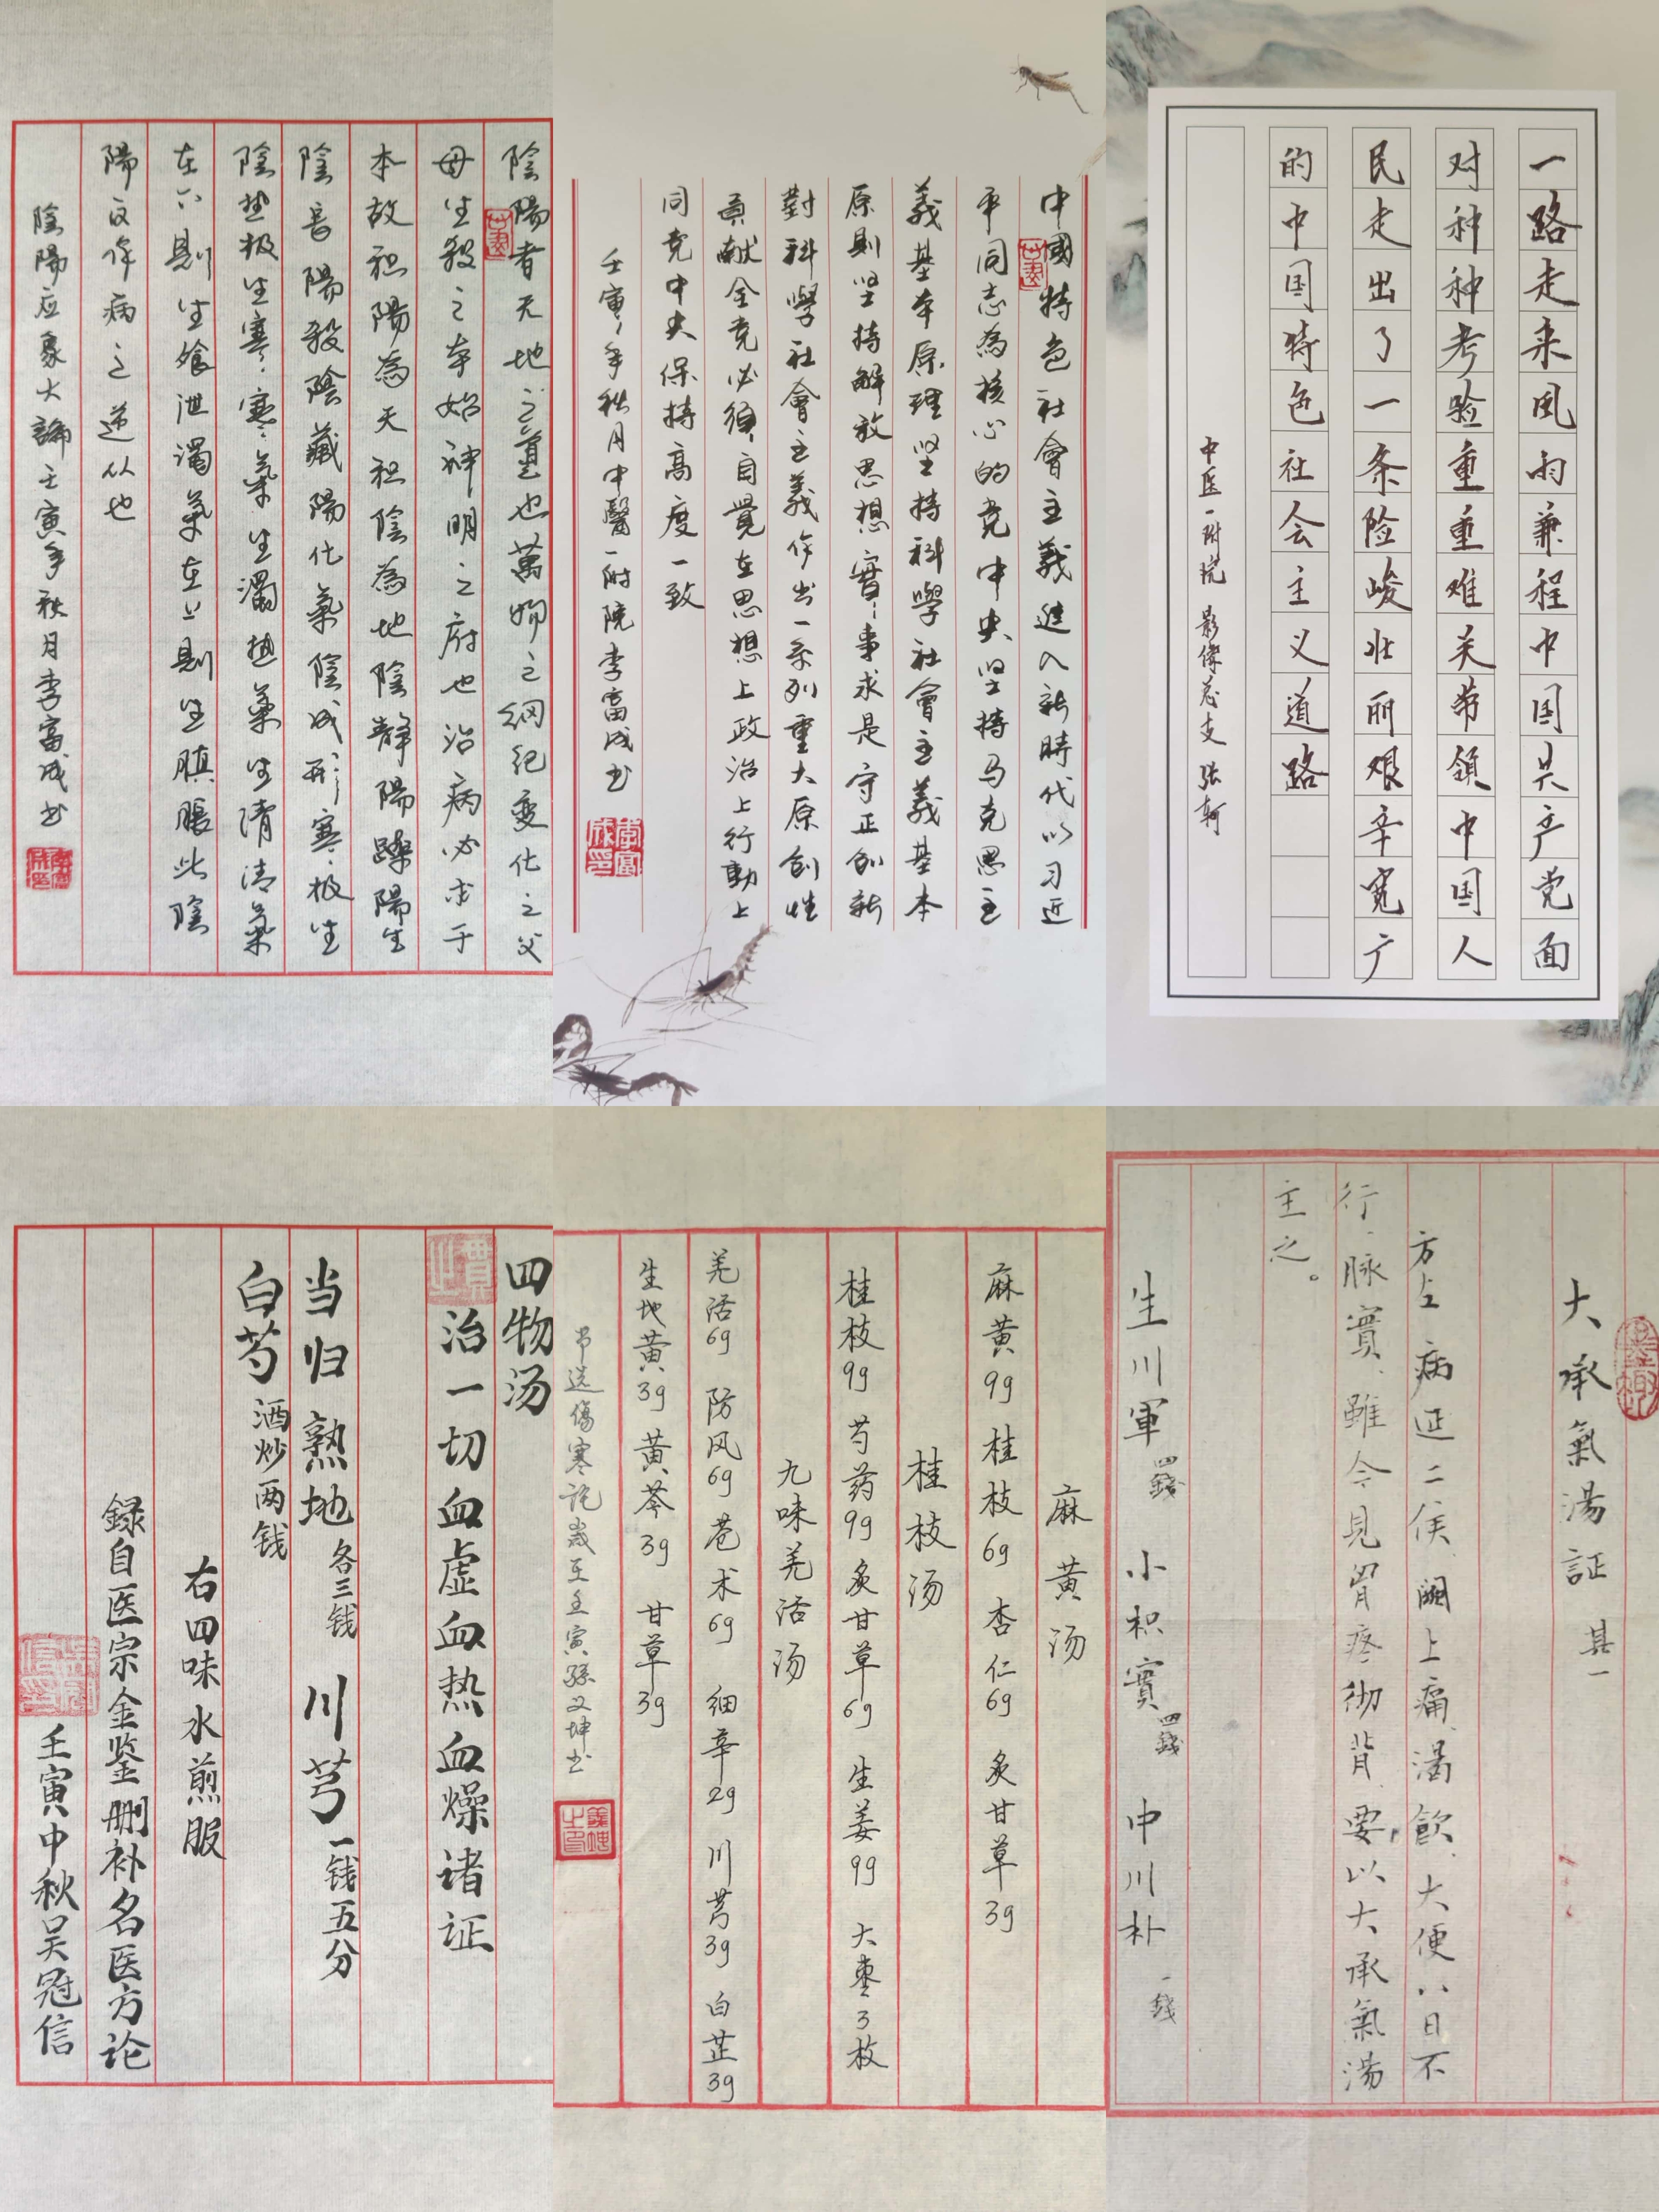 陰陽者天地之道也萬物之綱紀變化之父
母生殺之本始神明之府也治病必求于
本故积陽為天积陰為地陰静陽躁陽生
陰長陽殺陰藏陽化氣陰成形寒极生
陰热极生寒寒氣生濁热氣生清清氣
在下則生飧泄濁氣在上則生䐜脹此陰
陽反作病之逆从也
陰陽应象大論壬寅年秋月李富成书
中國特色社會主義進入新時代以习近
平同志為核心的党中央坚持马克思主
義基本原理坚持科學社會主義基本
原則坚持解放思想實事求是守正创新
對科學社會主義作出一系列重大原创性
貢献全党必須自覺在思想上政治上行動上
同党中央保持高度一致
壬寅年秋月中醫一附院李富成书
一路走来风雨兼程中国共产党面
对种种考验重重难关带领中国人
民走出了一条险峻壮丽艰辛宽广
的中国特色社会主义道路
中医一附院 影像总支 张轲
四物汤
治一切血虚血热血燥诸证
当归 熟地 各三钱 川芎 一钱五分
白芍 酒炒两钱
右四味水煎服
録自医宗金鉴删补名医方论
壬寅中秋吴冠信
麻黄汤
麻黄9g 桂枝6g 杏仁6g 炙甘草3g
桂枝汤
桂枝9g 芍药9g 炙甘草6g 生姜9g 大枣3枚
九味羌活汤
羌活6g 防风6g 苍术6g 细辛2g 川芎3g 白芷3g
生地黄3g 黄芩3g 甘草3g
选傷寒论歲至壬寅孫义坤书
大承氣湯証 其一
方左 病延二候 闕上痛 渴飲 大便八日不
行、脉實、雖今見胃疼彻背、要以大承氣湯
主之。
生川軍 四錢 小枳實 四錢 中川朴 一錢